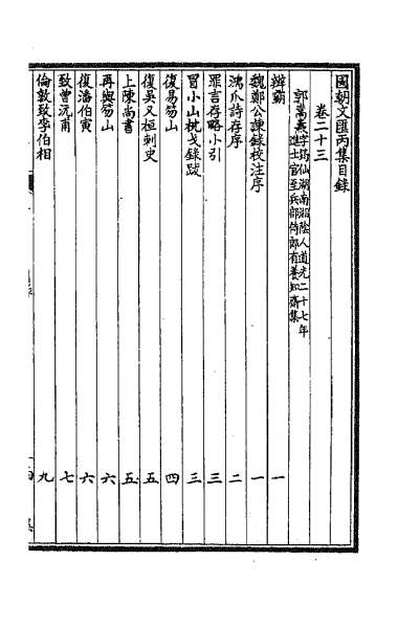 國朝文匯丙集目錄
卷二十三
郭嵩燾字筠仙湖南湘陰人道光二十七年
進士官至兵部侍郎有養知齋集
辨霸 一
魏鄭公諫錄校注序 一
鴻爪詩存序 二
罪言存略小引 三
冒小山枕戈錄跋 三
復易笏山 四
復吳又桓刺史 五
上陳尚書 五
再與笏山 六
復潘伯寅 六
致曾沅甫 七
倫敦致李伯相 九